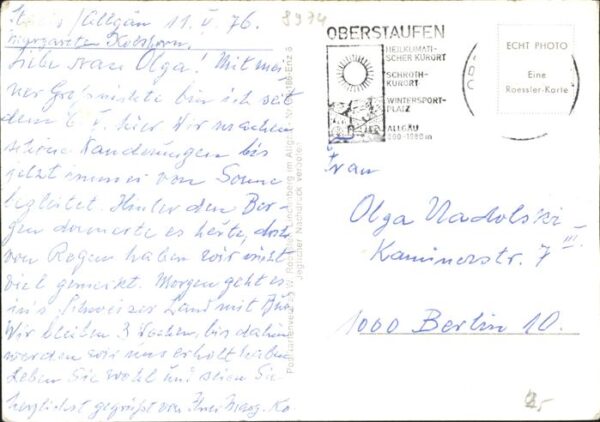 /Allgäu 11. V. 76.
Margareten Kobshorn.
Liebe Frau Olga! Mit mei-
ner Großnichte bin ich seit
dem 6. V. hier. Wir machen
schöne Wanderungen bis
jetzt immer von Sonne
begleitet. Hinter den Ber-
gen donnerte es heute, doch
von Regen haben wir nicht
viel gemerkt. Morgen geht es
in's Schweizer Land mit Bus
Wir bleiben 3 Wochen, bis dahin
werden wir uns erholt haben
Leben Sie wohl und seien Sie
herzlichst gegrüßt von Ihrer Marg. Ko
8974
OBERSTAUFEN
HEILKLIMATI-
SCHER KURORT
SCHROTH-
KURORT
WINTERSPORT-
PLATZ
ALLGÄU
ECHT PHOTO
Eine
Roessler-Karte
Jeglicher Nachdruck verboten
Frau
Olga Nadolski
Kaminerstr. 7 III.
1000 Berlin 10.